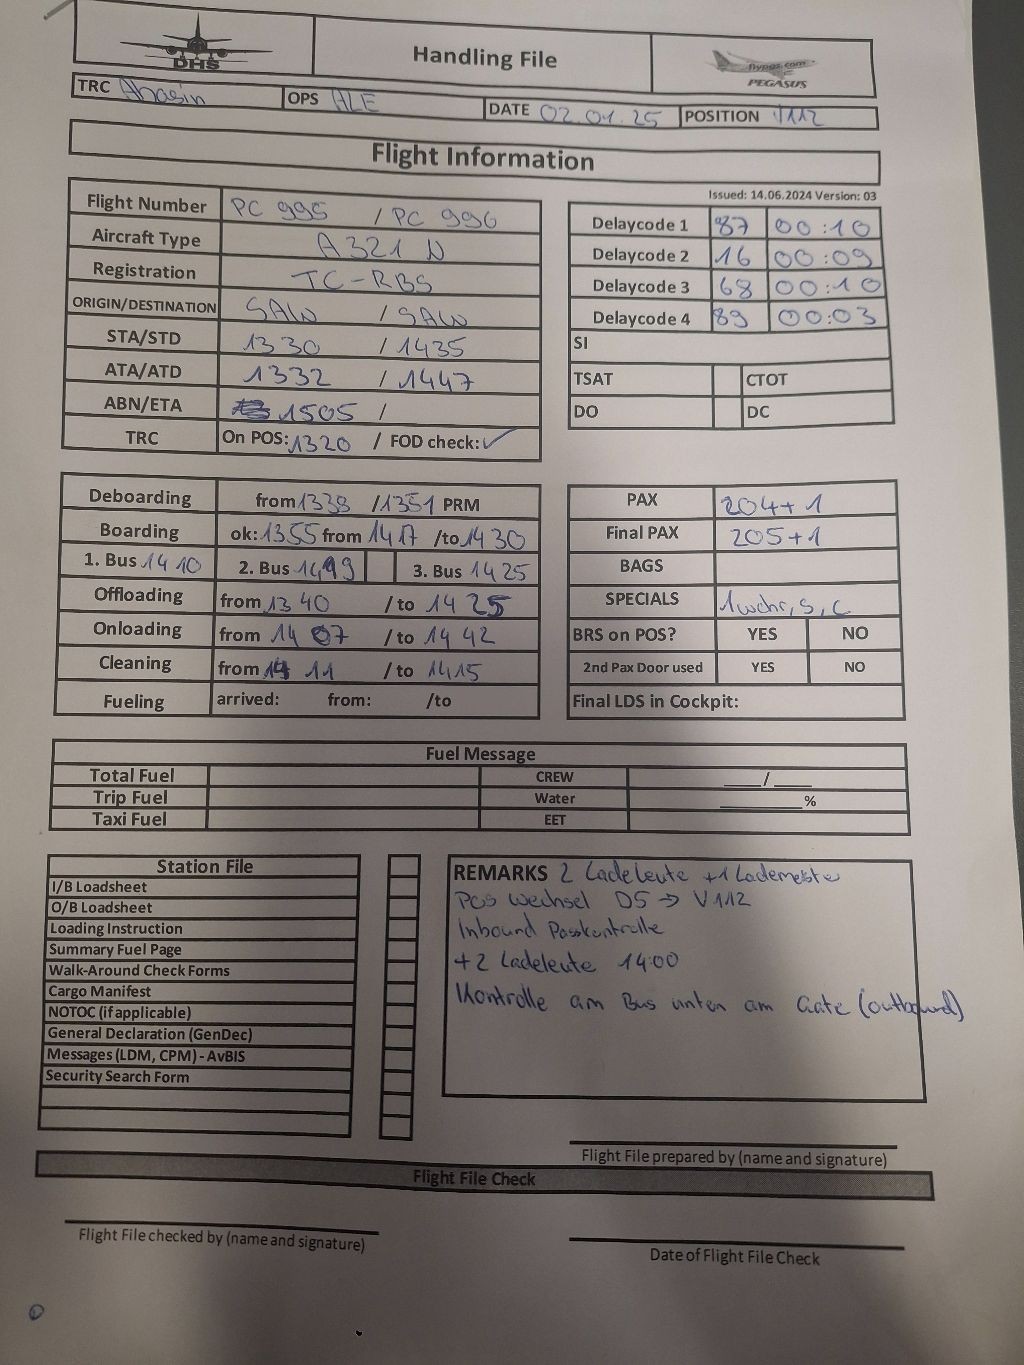 DHS
Handling File
flypgs.com
PEGASUS
TRC
OPS ALE
DATE 02.01.25
POSITION V112
Flight Information
Issued: 14.06.2024 Version: 03
Flight Number PC 995 / PC 996
Aircraft Type A321 N
Registration TC-RBS
ORIGIN/DESTINATION SAW / SAW
STA/STD 1330 / 1435
ATA/ATD 1332 / 1447
ABN/ETA 1505 /
TRC On POS: 1320 / FOD check: ✓
Delaycode 1 87 00:10
Delaycode 2 16 00:09
Delaycode 3 68 00:10
Delaycode 4 89 00:03
SI
TSAT CTOT
DO DC
Deboarding from 1338 / 1351 PRM
Boarding ok: 1355 from 1417 /to 1430
1. Bus 1410 2. Bus 3. Bus 1425
Offloading from 1340 / to 1425
Onloading from 1407 / to 1442
Cleaning from 1411 / to 1415
Fueling arrived: from: /to
PAX 204+1
Final PAX 205+1
BAGS
SPECIALS 1 wchr, s, c
BRS on POS? YES NO
2nd Pax Door used YES NO
Final LDS in Cockpit:
Fuel Message
Total Fuel CREW ___/___
Trip Fuel Water ________%
Taxi Fuel EET
Station File
I/B Loadsheet
O/B Loadsheet
Loading Instruction
Summary Fuel Page
Walk-Around Check Forms
Cargo Manifest
NOTOC (if applicable)
General Declaration (GenDec)
Messages (LDM, CPM) - AvBIS
Security Search Form
REMARKS 2 Ladeleute +1 Lademeister
Pos Wechsel D5 → V112
Inbound Passkontrolle
+2 Ladeleute 14:00
Kontrolle am Bus unten am Gate (outbound)
Flight File prepared by (name and signature)
Flight File Check
Flight File checked by (name and signature)
Date of Flight File Check